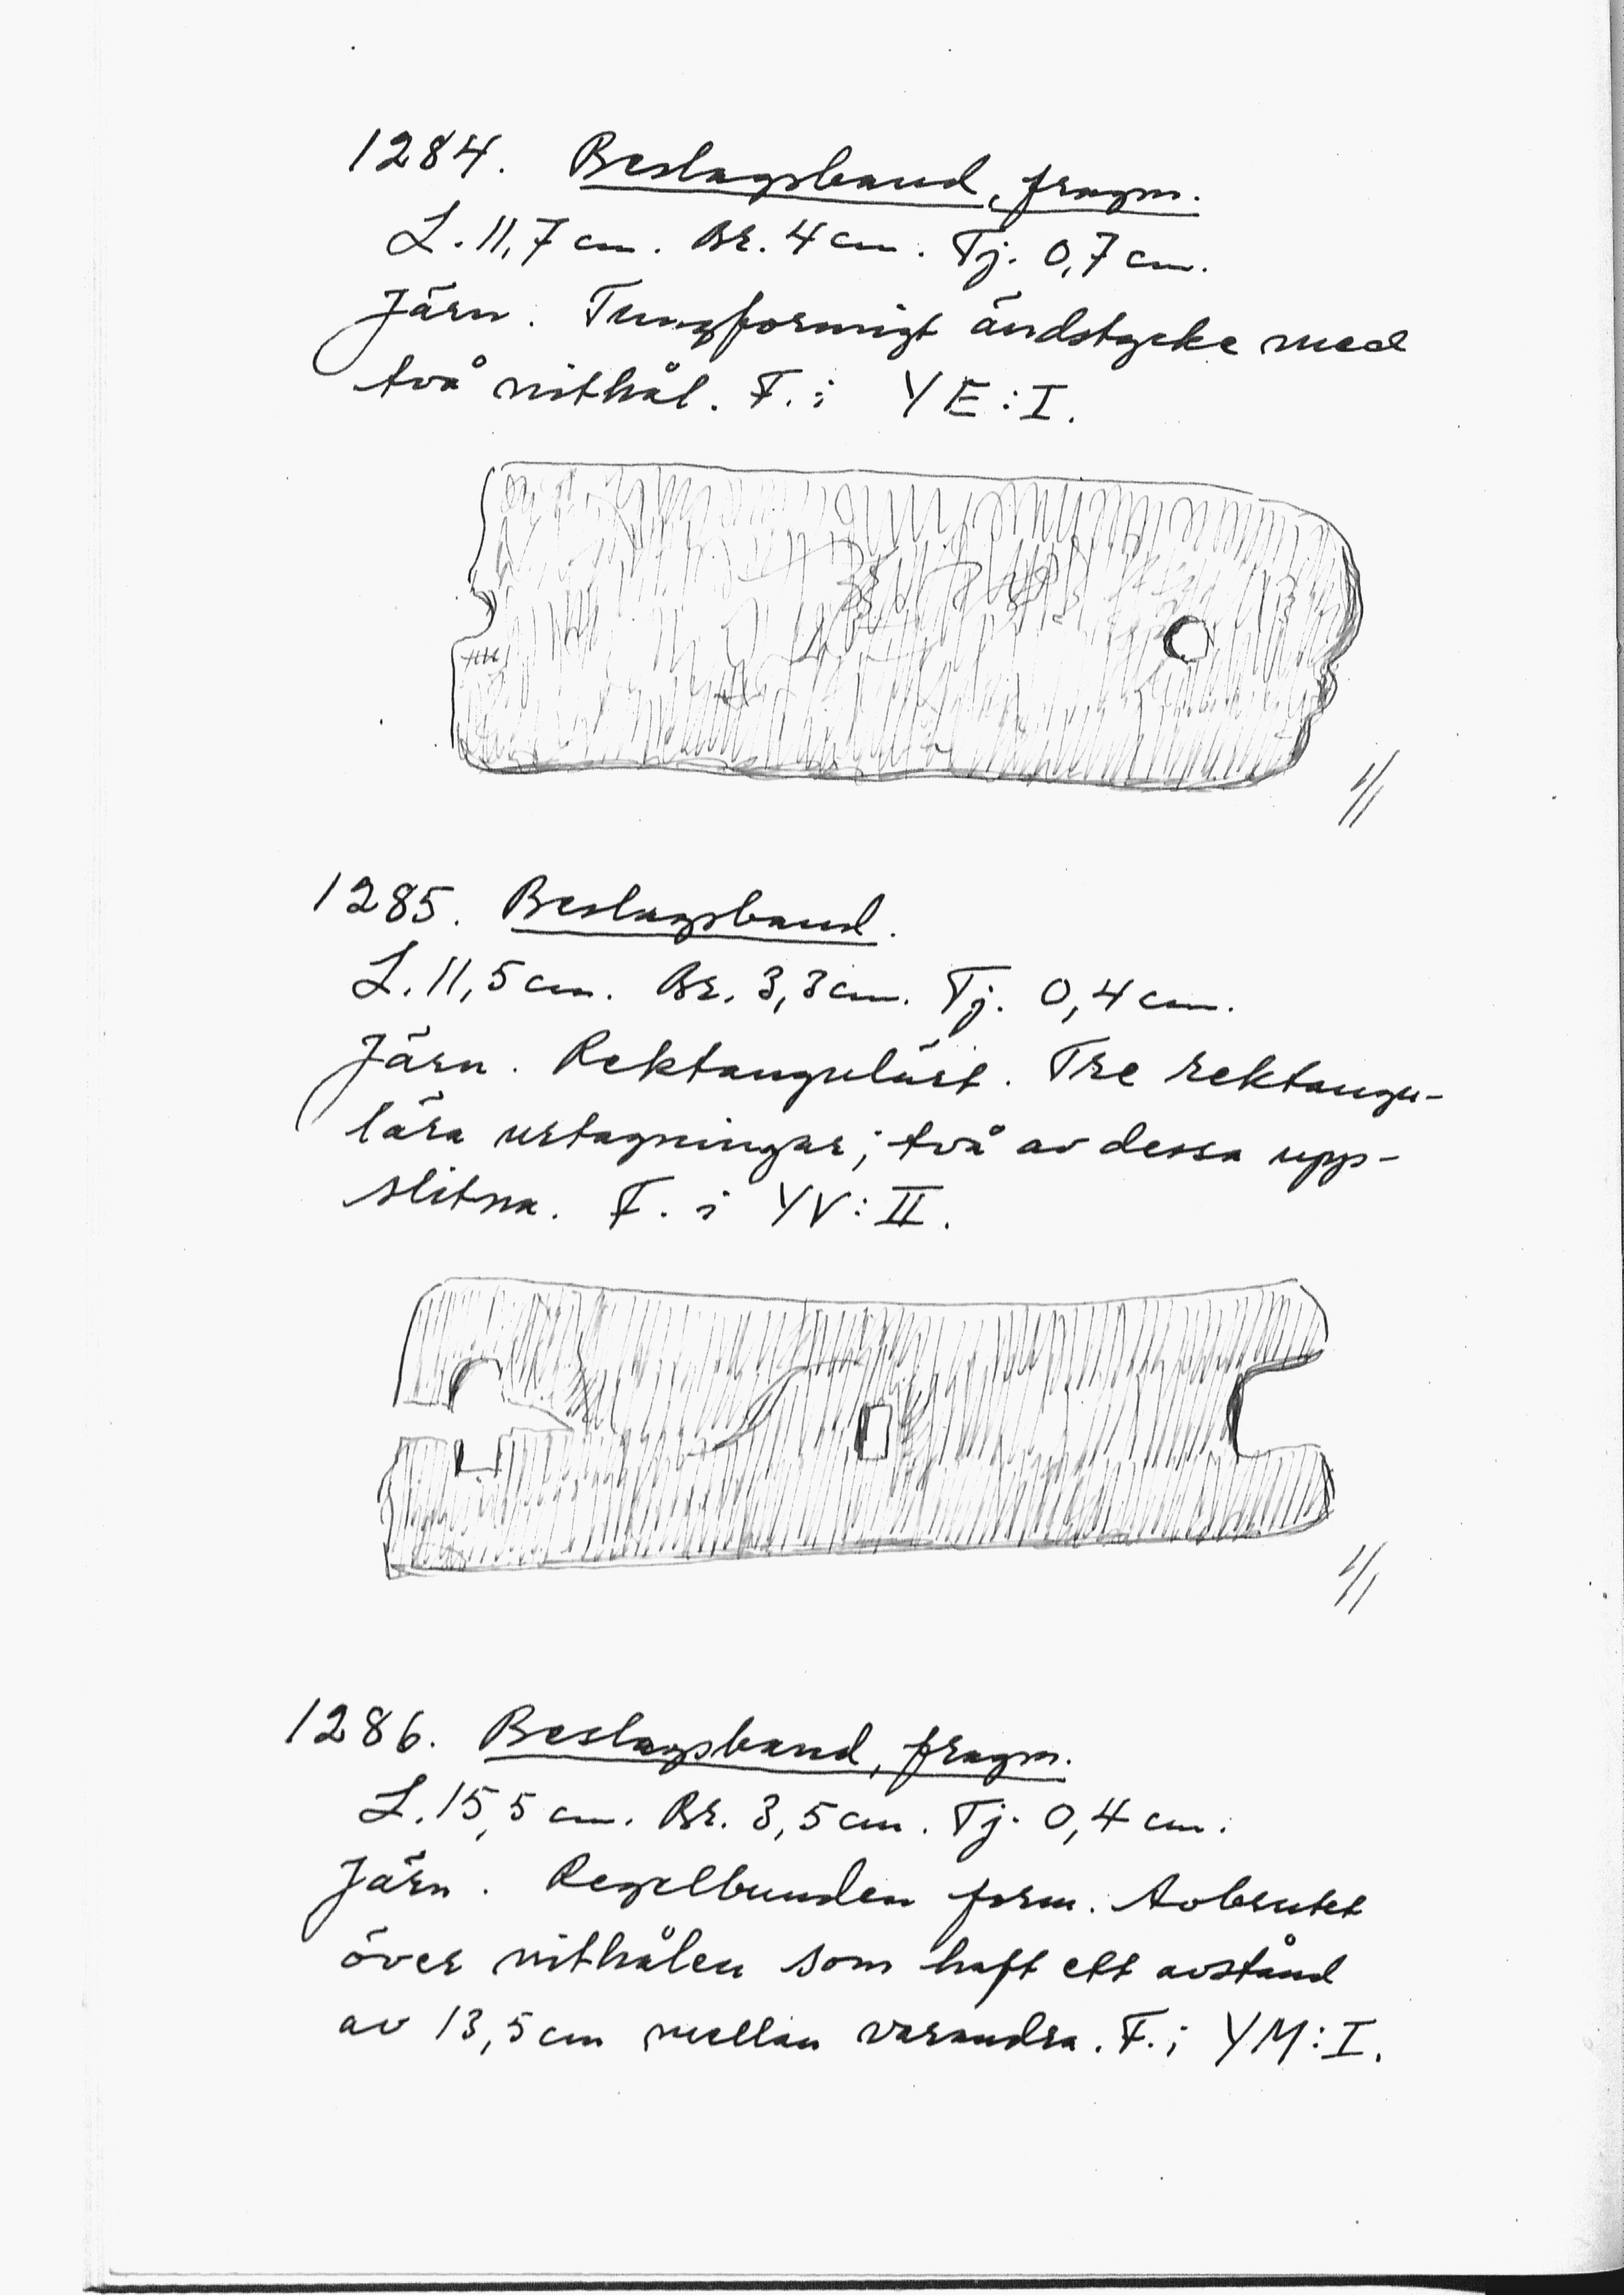 1284. Beslagsband, fragm.
L. 11,7 cm. Br. 4 cm. Tj. 0,7 cm.
Järn. Tungformigt ändstycke med
två nithål. F. i YE:I.
1/1
1285. Beslagsband.
L. 11,5 cm. Br. 3,3 cm. Tj. 0,4 cm.
Järn. Rektangulärt. Tre rektangu-
lära urtagningar; två av dessa upp-
slitna. F. i YV:II.
1/1
1286. Beslagsband, fragm.
L. 15,5 cm. Br. 3,5 cm. Tj. 0,4 cm.
Järn. Regelbunden form. Avbrutet
över nithålen som haft ett avstånd
av 13,5 cm mellan varandra. F. i YM:I.